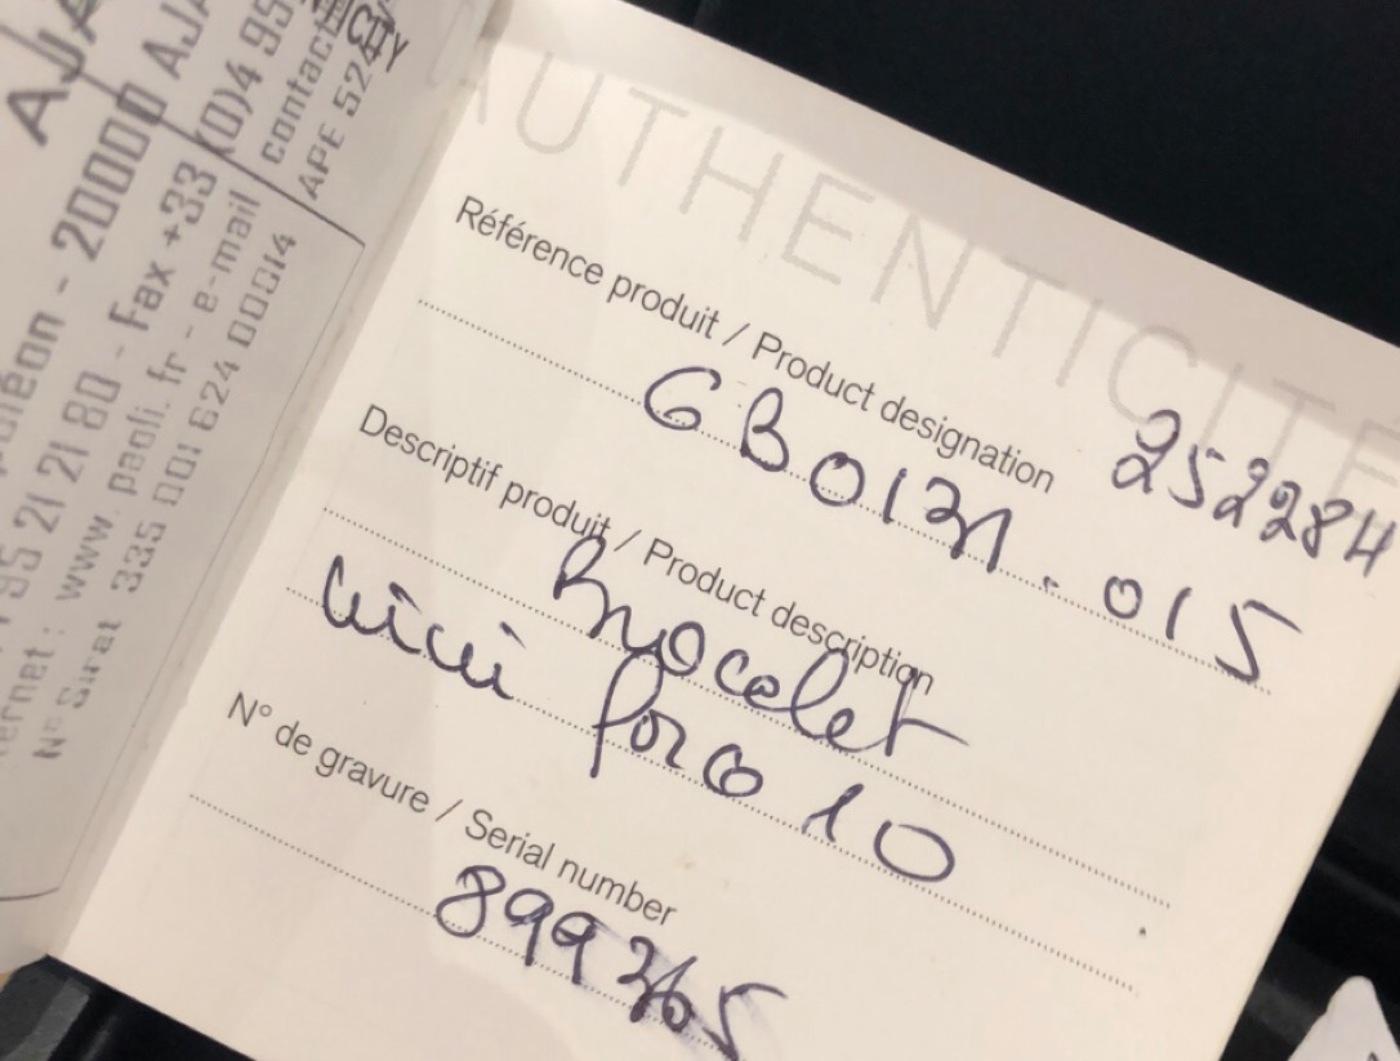 AUTHENTICITE
Référence produit / Product designation
252284
GB0131.015
Descriptif produit / Product description
Bracelet
mini force 10
N° de gravure / Serial number
899365
AJA
- 20000 AJA
21 21 80 - Fax +33 (0)4 95
www.paoli.fr - e-mail contact
N° Siret 335 001 624 00014 APE 524